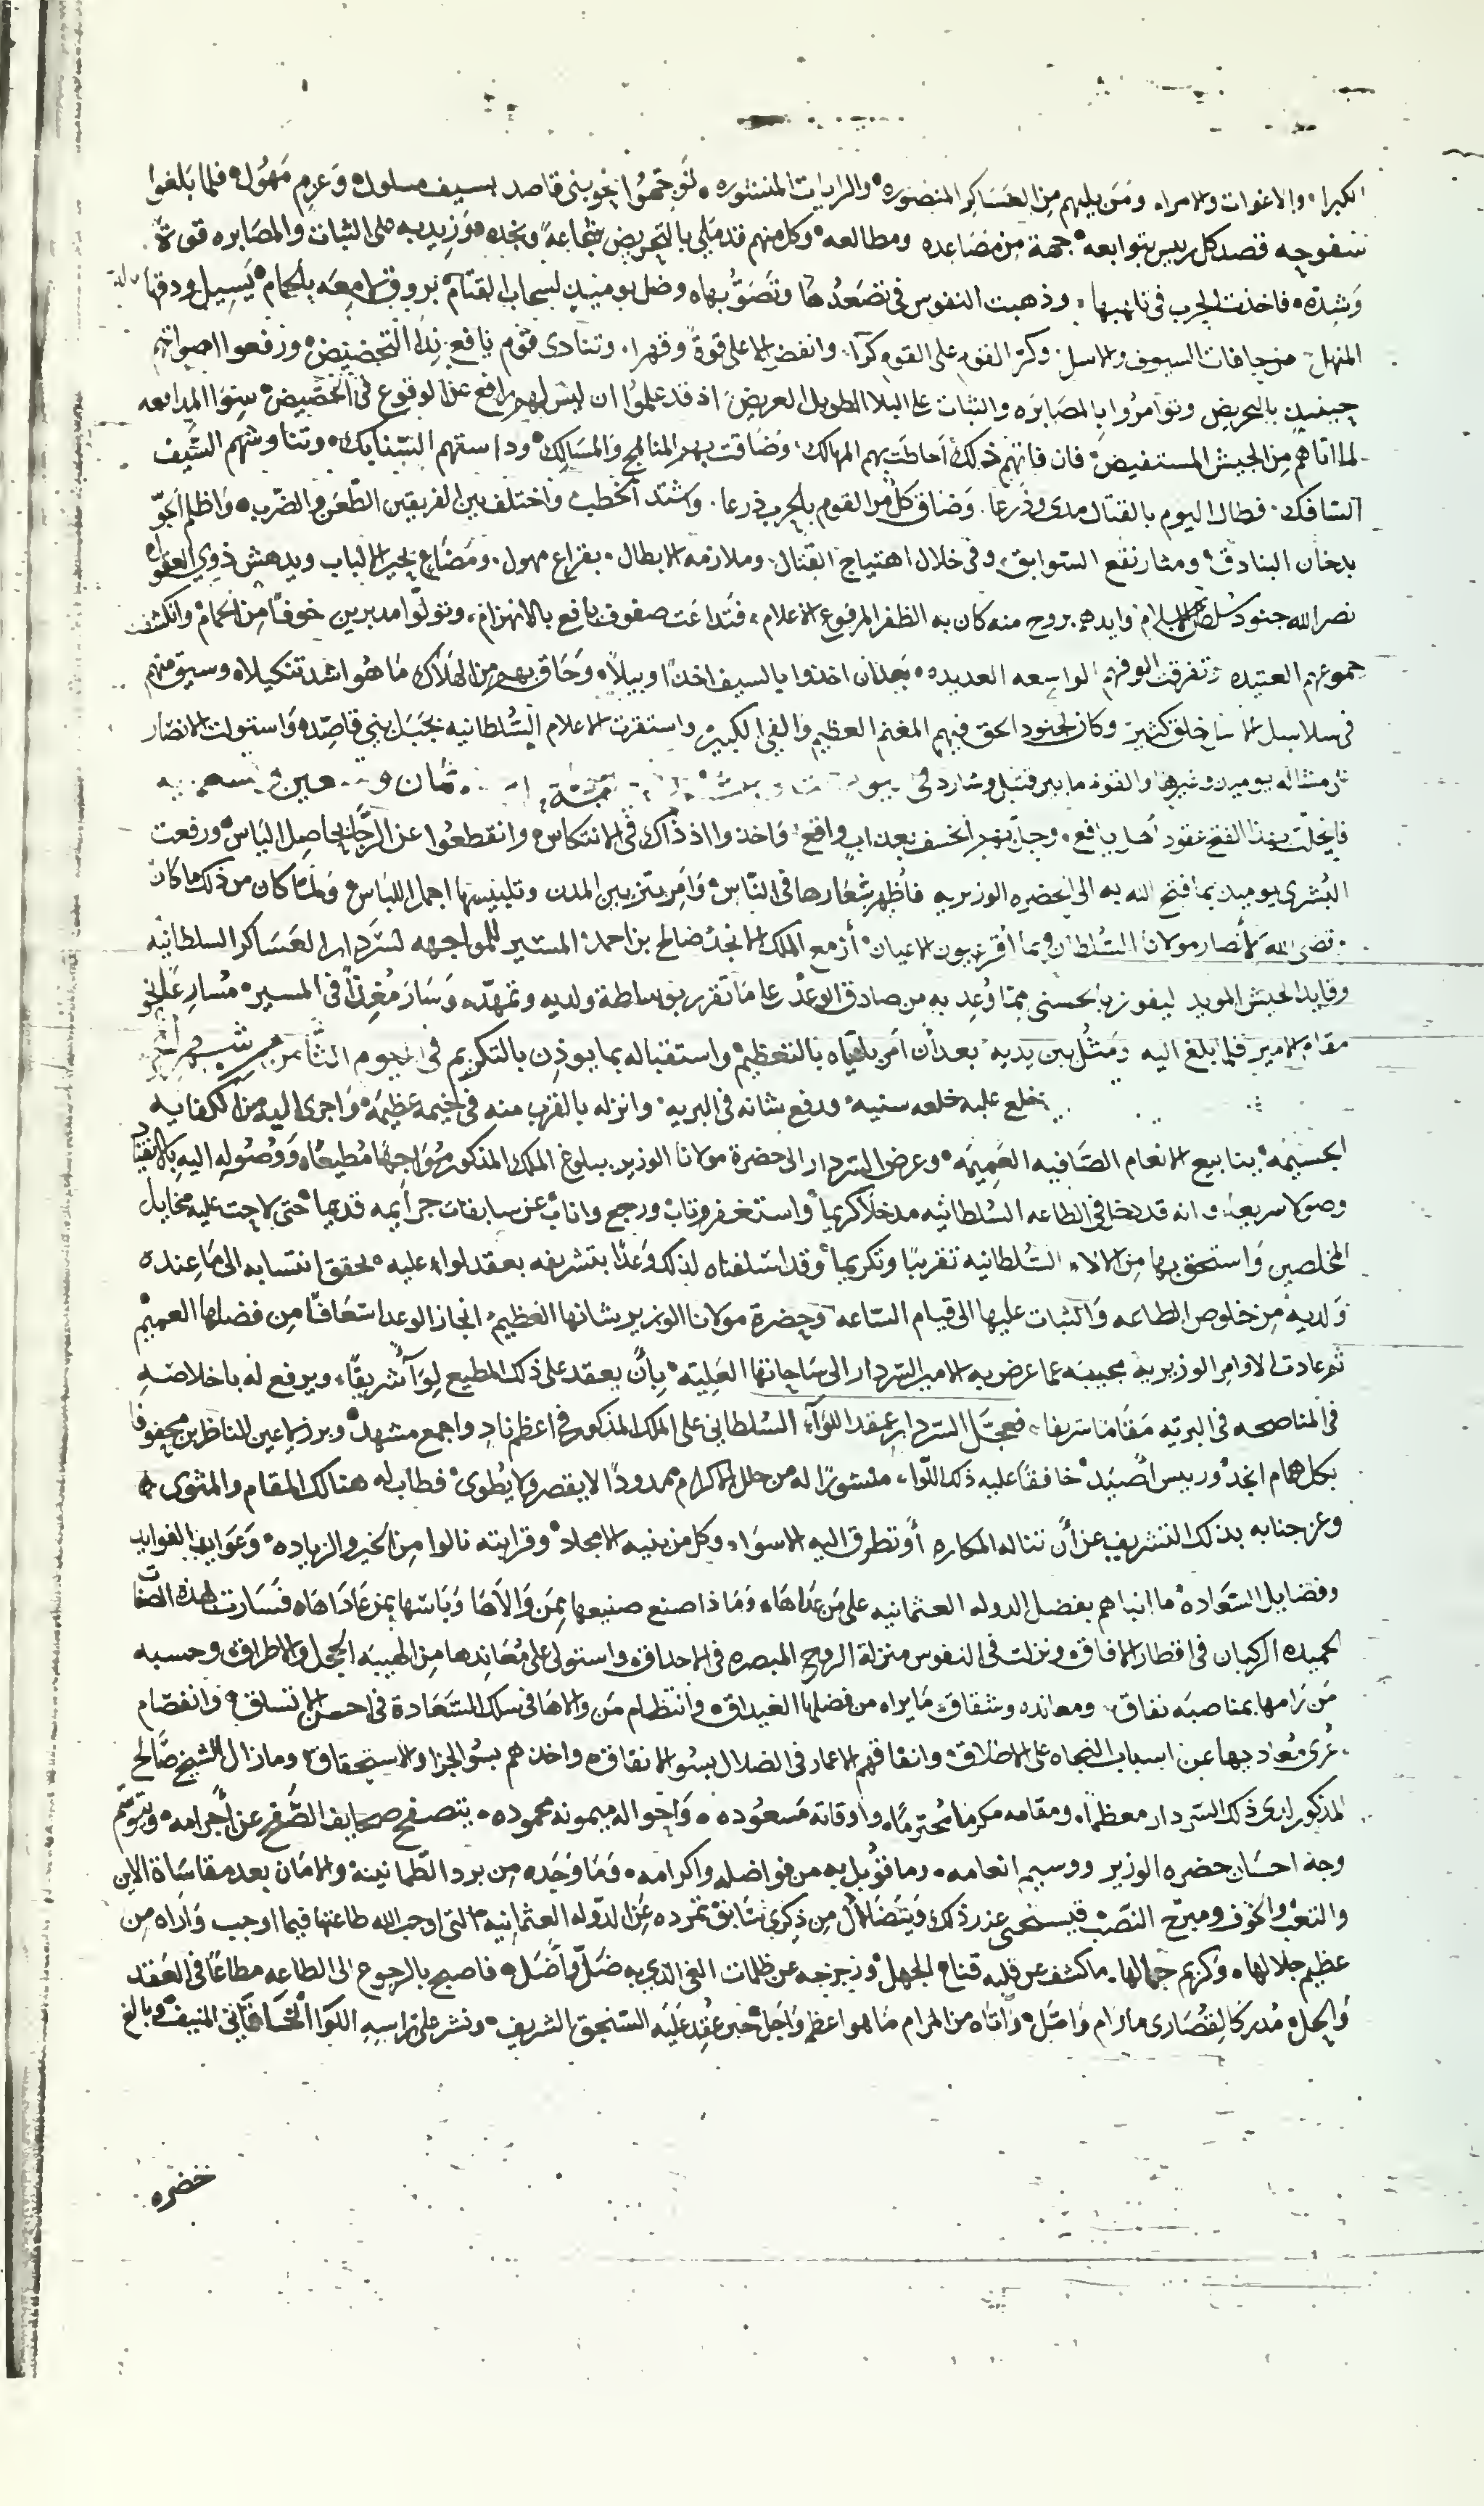 الكبراء والاغوات والامراء ومن يليهم من العساكر المنصوره والرايات المنشوره توجهوا نحو بنى قاصد بسيف مسلول وعزم مهول فلما بلغوا
سفوحه قصد كل رييس بتوابعه جهة من مصاعده ومطالعه وكل منهم قد ملي بالتحريض شجاعة ونجده وزيد به على الثبات والمصابره قوة
وشدة فاخذت الحرب فى تلهبها وذهبت النفوس فى تصعدها وتصوبها وضل يوميذ لسحاب القتام بروق لامعه بالحمام يسيل ودقها
المنهل من حافات السيوف والاسل وكر القوم على القوم كرا وانفض الاعلى قوة وقهرا وتنادى قوم يافع بندا التحضيض ورفعوا اصواتهم
حينيذ بالتحريض وتوامروا بالمصابره والثبات على البلا الطويل العريض اذ قد علموا ان ليس لهم رافع عن الوقوع فى الحضيض سوا المدافعه
لما اتاهم من الجيش المستفيض فان فاتهم ذلك احاطت بهم المهالك وضاقت بهم المناهج والمسالك وداستهم السنابك وتناوشهم السيف
السافك فطال اليوم بالقتال مدى وذرعا وضاق كل من القوم بالحرب ذرعا واشتد الخطب واختلف بين الفريقين الطعن والضرب واظلم الجو
بدخان البنادق ومثار نقع السوابق وفى خلال اهتياج القتال وملازمه الابطال بقراع مهول ومصاع يحير الالباب ويدهش ذوي العقول
نصر الله جنود سلطان الاسلام وايدهم بروح منه كان به الظفر المرفوع الاعلام فتداعت صفوف يافع بالانهزام وتولوا مدبرين خوفا من الحمام وانكشفت
جموعهم العتيده وتفرقت الوفهم الواسعه العديده بعد ان اخذوا بالسيف اخذا وبيلا وحاق بهم من الهلاك ما هو اشد تنكيلا وسيق منهم
فى سلاسل خلق كثير وكان لجنود الحق فيهم المغنم العظيم والفي الكبير واستقرت الاعلام السلطانيه بجبل بني قاصد واستولت الانصار
يوميذ ما بين قتيل وشارد فى ثمان و
فانحلت بهذا الفتح عقود اهل يافع وحل بهم الخسف بعذاب واقع واخذوا اذ ذاك فى الانتكاس وانقطعوا عن الرجا بحاصل الياس ورفعت
البشرى يوميذ بما فتح الله به الى الحضره الوزيريه فاظهر شعارها فى الناس وامر بتزيين المدن وتلبيسها اجمل اللباس ولما كان من ذلك ما كان
نصر الله لانصار مولانا السلطان وبما اقر عيون الاعيان ازمع الملك الامجد صالح بن احمد المسير للمواجهه لسردار العساكر السلطانيه
وقايد الجيش المويد ليفوز بالحسنى مما وعد به من صادق الوعد على ما تقرر بوساطة ولديه وتمهد وسار مغذا فى المسير مسارعا نحو
مقام الامير فلما بلغ اليه ومثل بين يديه بعد ان امر بلقياه بالتعظيم واستقباله بما يوذن بالتكريم فى اليوم الثامن من شهر
خلع عليه خلعه سنيه ورفع شانه فى البريه وانزله بالقرب منه فى خيمه عظيمه واجرى اليه من الكفايه
الجسيمه ينابيع الانعام الصافيه العميمه وعرض السردار الى حضرة مولانا الوزير ببلوغ الملك المذكور مواجها مطيعا ووصوله اليه بالانقياد
وصولا سريعا وانه قد دخل فى الطاعه السلطانيه مدخلا كريما واستغفر وتاب ورجع واناب عن سابقات جرايمه قديما حتى لاحت عليه مخايل
المخلصين واستحق بها من الالاء السلطانيه تقريبا وتكريما وقد اسلفناه لذلك وعدا بتشريفه بعقد لواء عليه لحقق انتسابه الى ما عنده
ولديه من خلوص الطاعه والثبات عليها الى قيام الساعه وحضرة مولانا الوزير شانها العظيم انجاز الوعد اسعافا من فضلها العميم
ثم عادت الاوامر الوزيريه مجيبه عما عرض به الامير السردار الى ساحاتها العليه بان يعقد على ذلك المطيع لوآ شريفا ويرفع له باخلاصه
فى المناصحه فى البريه مقاما شريفا فعجل السردار عقد اللواء السلطاني على الملك المذكور فى اعظم ناد واجمع مشهد وبرز باعين الناظرين محفوفا
بكل همام انجد ورييس اصيد خافقا عليه ذلك اللواء منشورا له من ظلل الاكرام ممدودا لا يقصر ولا يطوى فطاب له هنالك المقام والمثوى
وعز جنابه بذلك التشريف عن ان تناله المكاره او تطرق اليه الاسواء وكل من بنيه الامجاد وقرابته نالوا من الخير والزياده وعوايد الفوايد
وفضايل السعاده ما انباهم بفضل الدوله العثمانيه على من عداها وما ذا صنع صنيعها بمن والاها وباسها بمن عاداها فسارت بهذه الصفات
الحميده الركبان فى اقطار الافاق ونزلت فى النفوس منزلة الروح المبصره فى الاحداق واستولى على معاندها من الهيبه الخجل والاطراق وحسبه
من رامها بمناصبه نفاق ومعانده وشقاق ما يراه من فضلها الغيداق وانتظام من والاها فى سلك السعادة فى احسن الاتساق وانفصام
عرى معاديها عن اسباب النجاه على الاطلاق وانفاقهم الاعمار فى الضلال بسو الانفاق واخذهم بسو الجزا والاستحقاق وما زال الشيخ صالح
المذكور لدى ذلك السردار معظما ومقامه مكرما محترما واوقاته مسعوده واحواله ميمونه محموده يتصفح صحايف الصفح عن اجرامه ويتوسم
وجه احسان حضره الوزير ووسيم انعامه وما قوبل به من فواضله واكرامه وما وجده من برد الطمانينه والامان بعد مقاساة الاين
والتعب والخوف ومبرح النصب فيستحى عند ذلك ويتضاءل من ذكرى سابق تمرده عن الدوله العثمانيه التى اوجب الله طاعتها فيما اوجب واراه من
عظيم جلالها وكريم جمالها ما كشف عن قلبه قناع الجهل وزحزحه عن ظلمات الغى الذى به ضل واضل فاصبح بالرجوع الى الطاعه مطاعا فى العقد
والحل مدركا لقصارى ما رام وامل واتاه من المرام ما هو اعظم واجل حين عقد عليه السنجق الشريف ونشر على راسه اللوا الخاقانى المنيف وبالغ
حضره